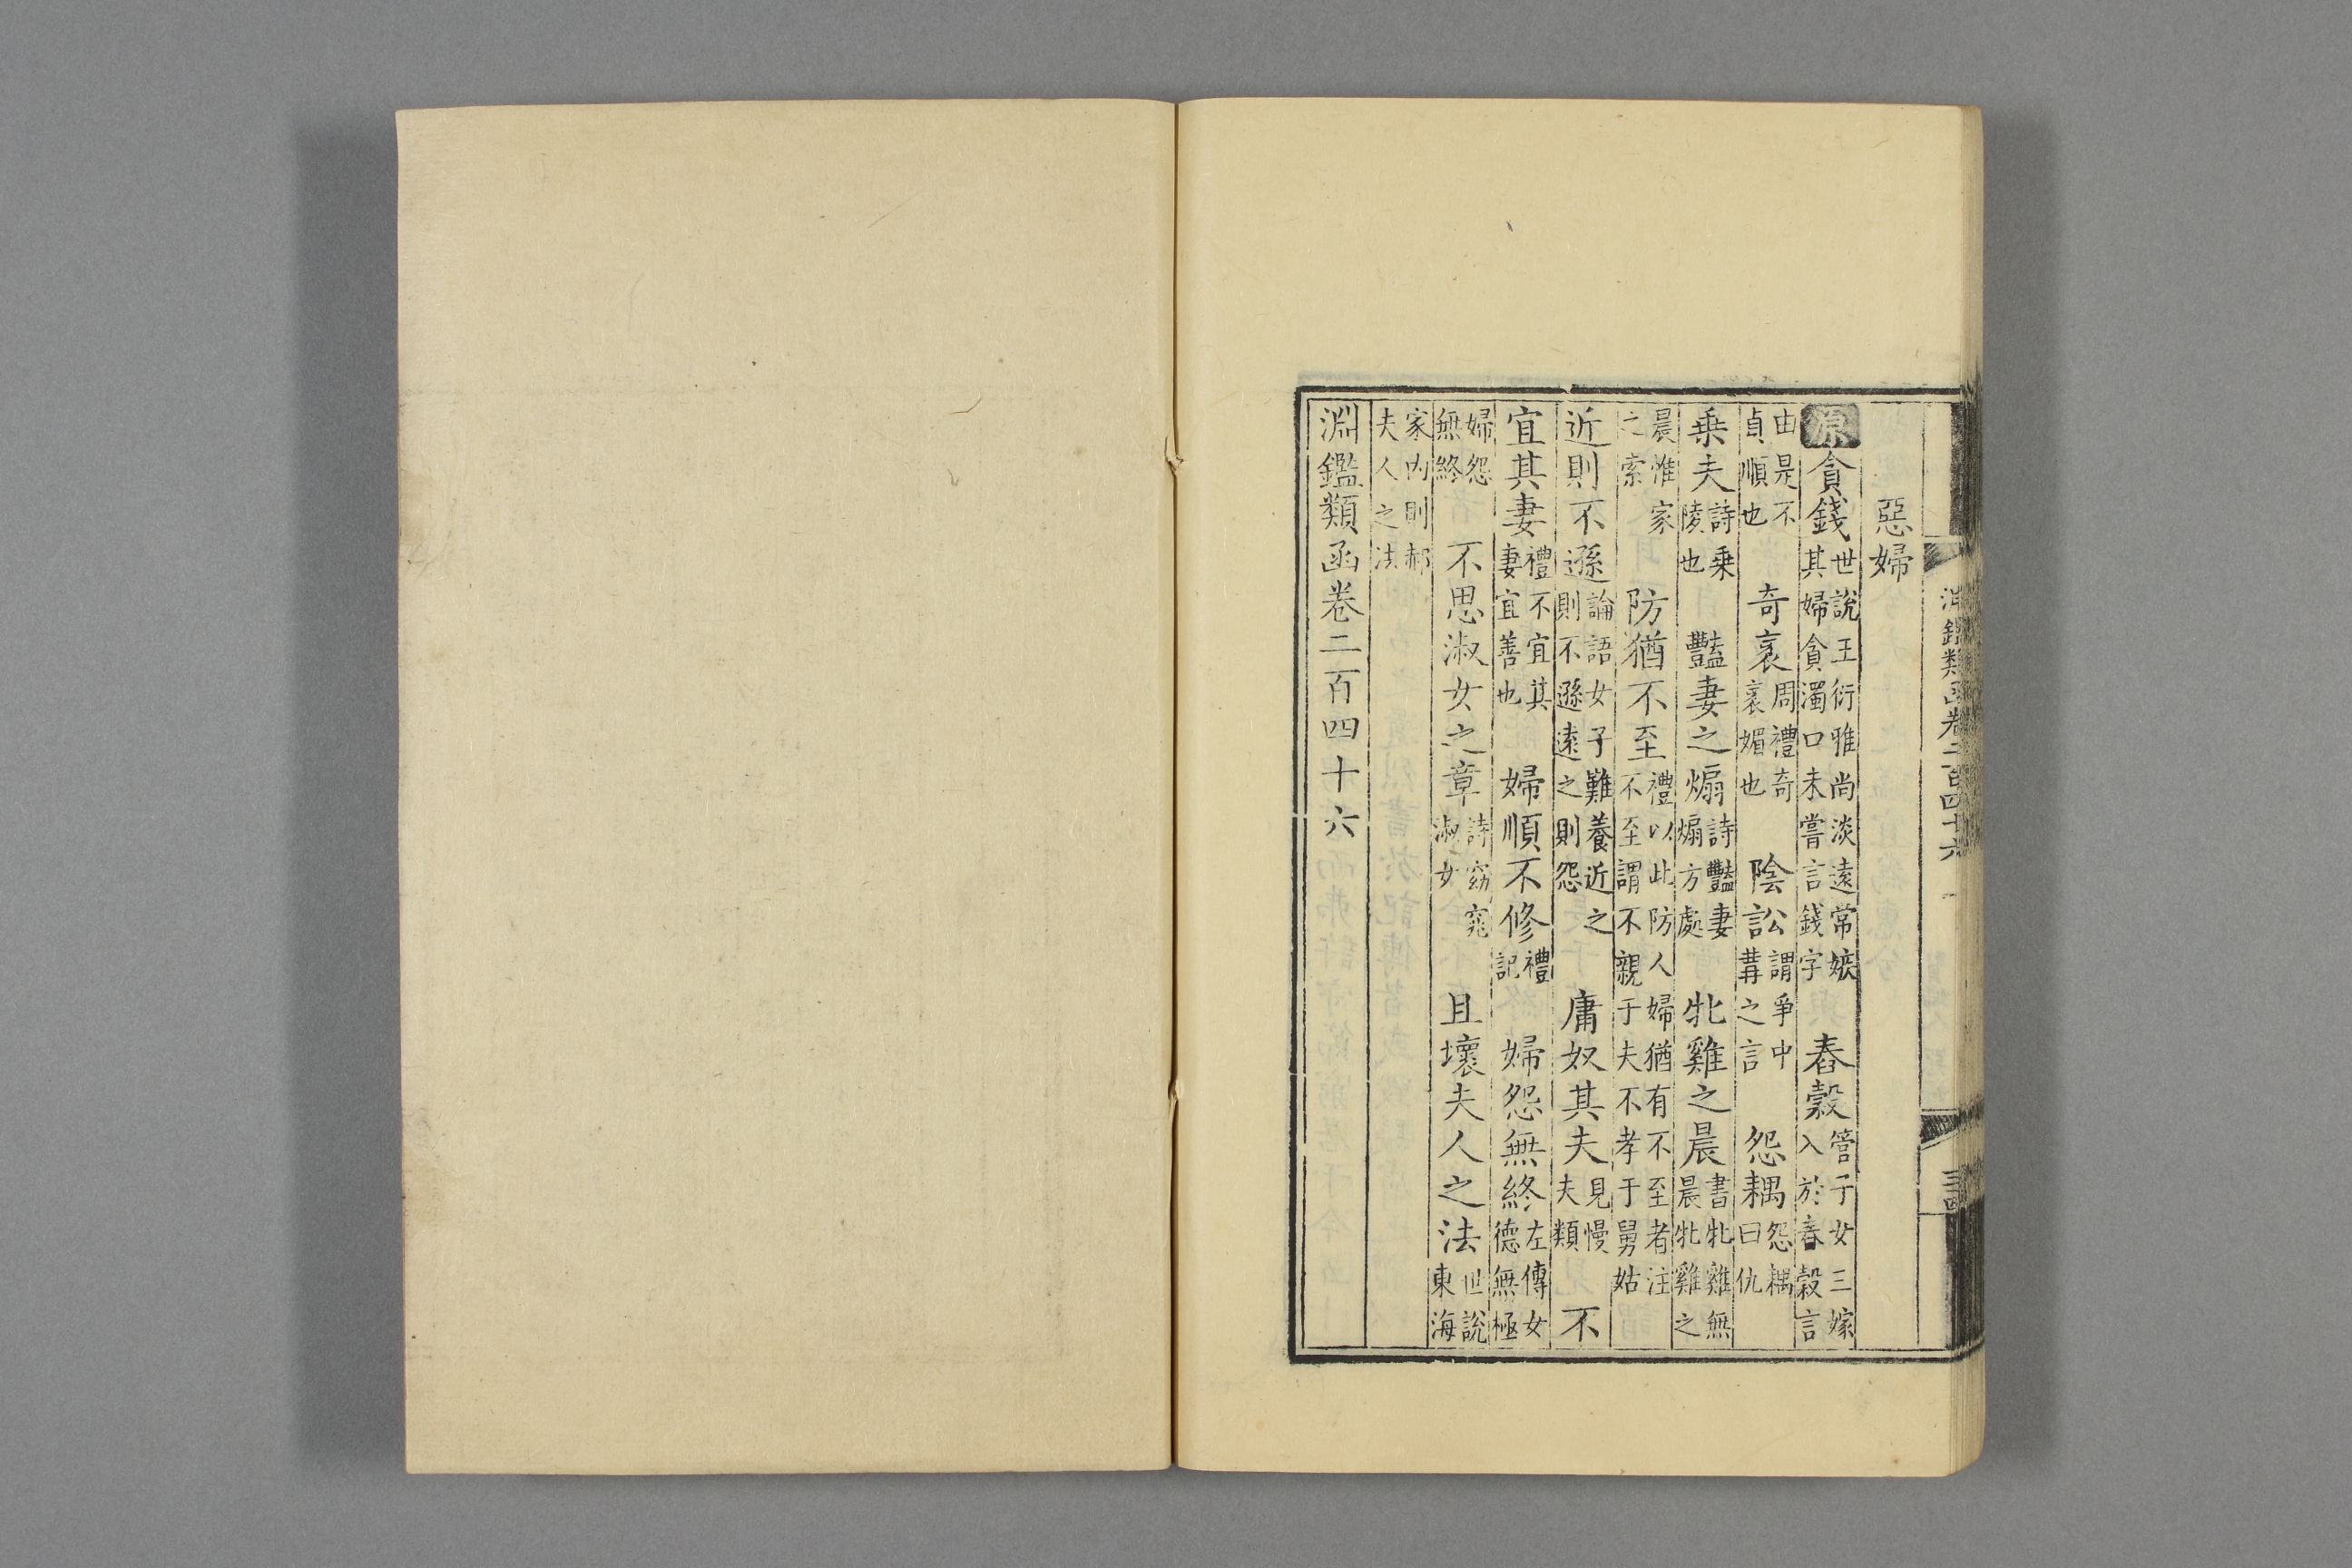 惡婦
源貪錢世說王衍雅尚淡遠常嫉其婦貪濁口未嘗言錢字 舂穀管子女三嫁入於舂穀言
由是不貞順也 奇衺周禮奇衺衺媚也 陰訟謂爭中冓之言 怨耦怨耦曰仇
乗夫詩乗陵也 豔妻之煽詩豔妻煽方處 牝雞之晨書牝雞無晨牝雞之
晨惟家之索 防猶不至禮以此防人婦猶有不至者注不至謂不親于夫不孝于舅姑
近則不遜論語女子難養近之則不遜遠之則怨 庸奴其夫見慢夫類 不
宜其妻禮不宜其妻宜善也 婦順不修禮記 婦怨無終左傳女德無極
婦怨無終 不思淑女之章詩窈窕淑女 且壞夫人之法世說東海
家内則郝夫人之法
淵鑑類函卷二百四十六
淵鑑類函卷二百四十六
三四